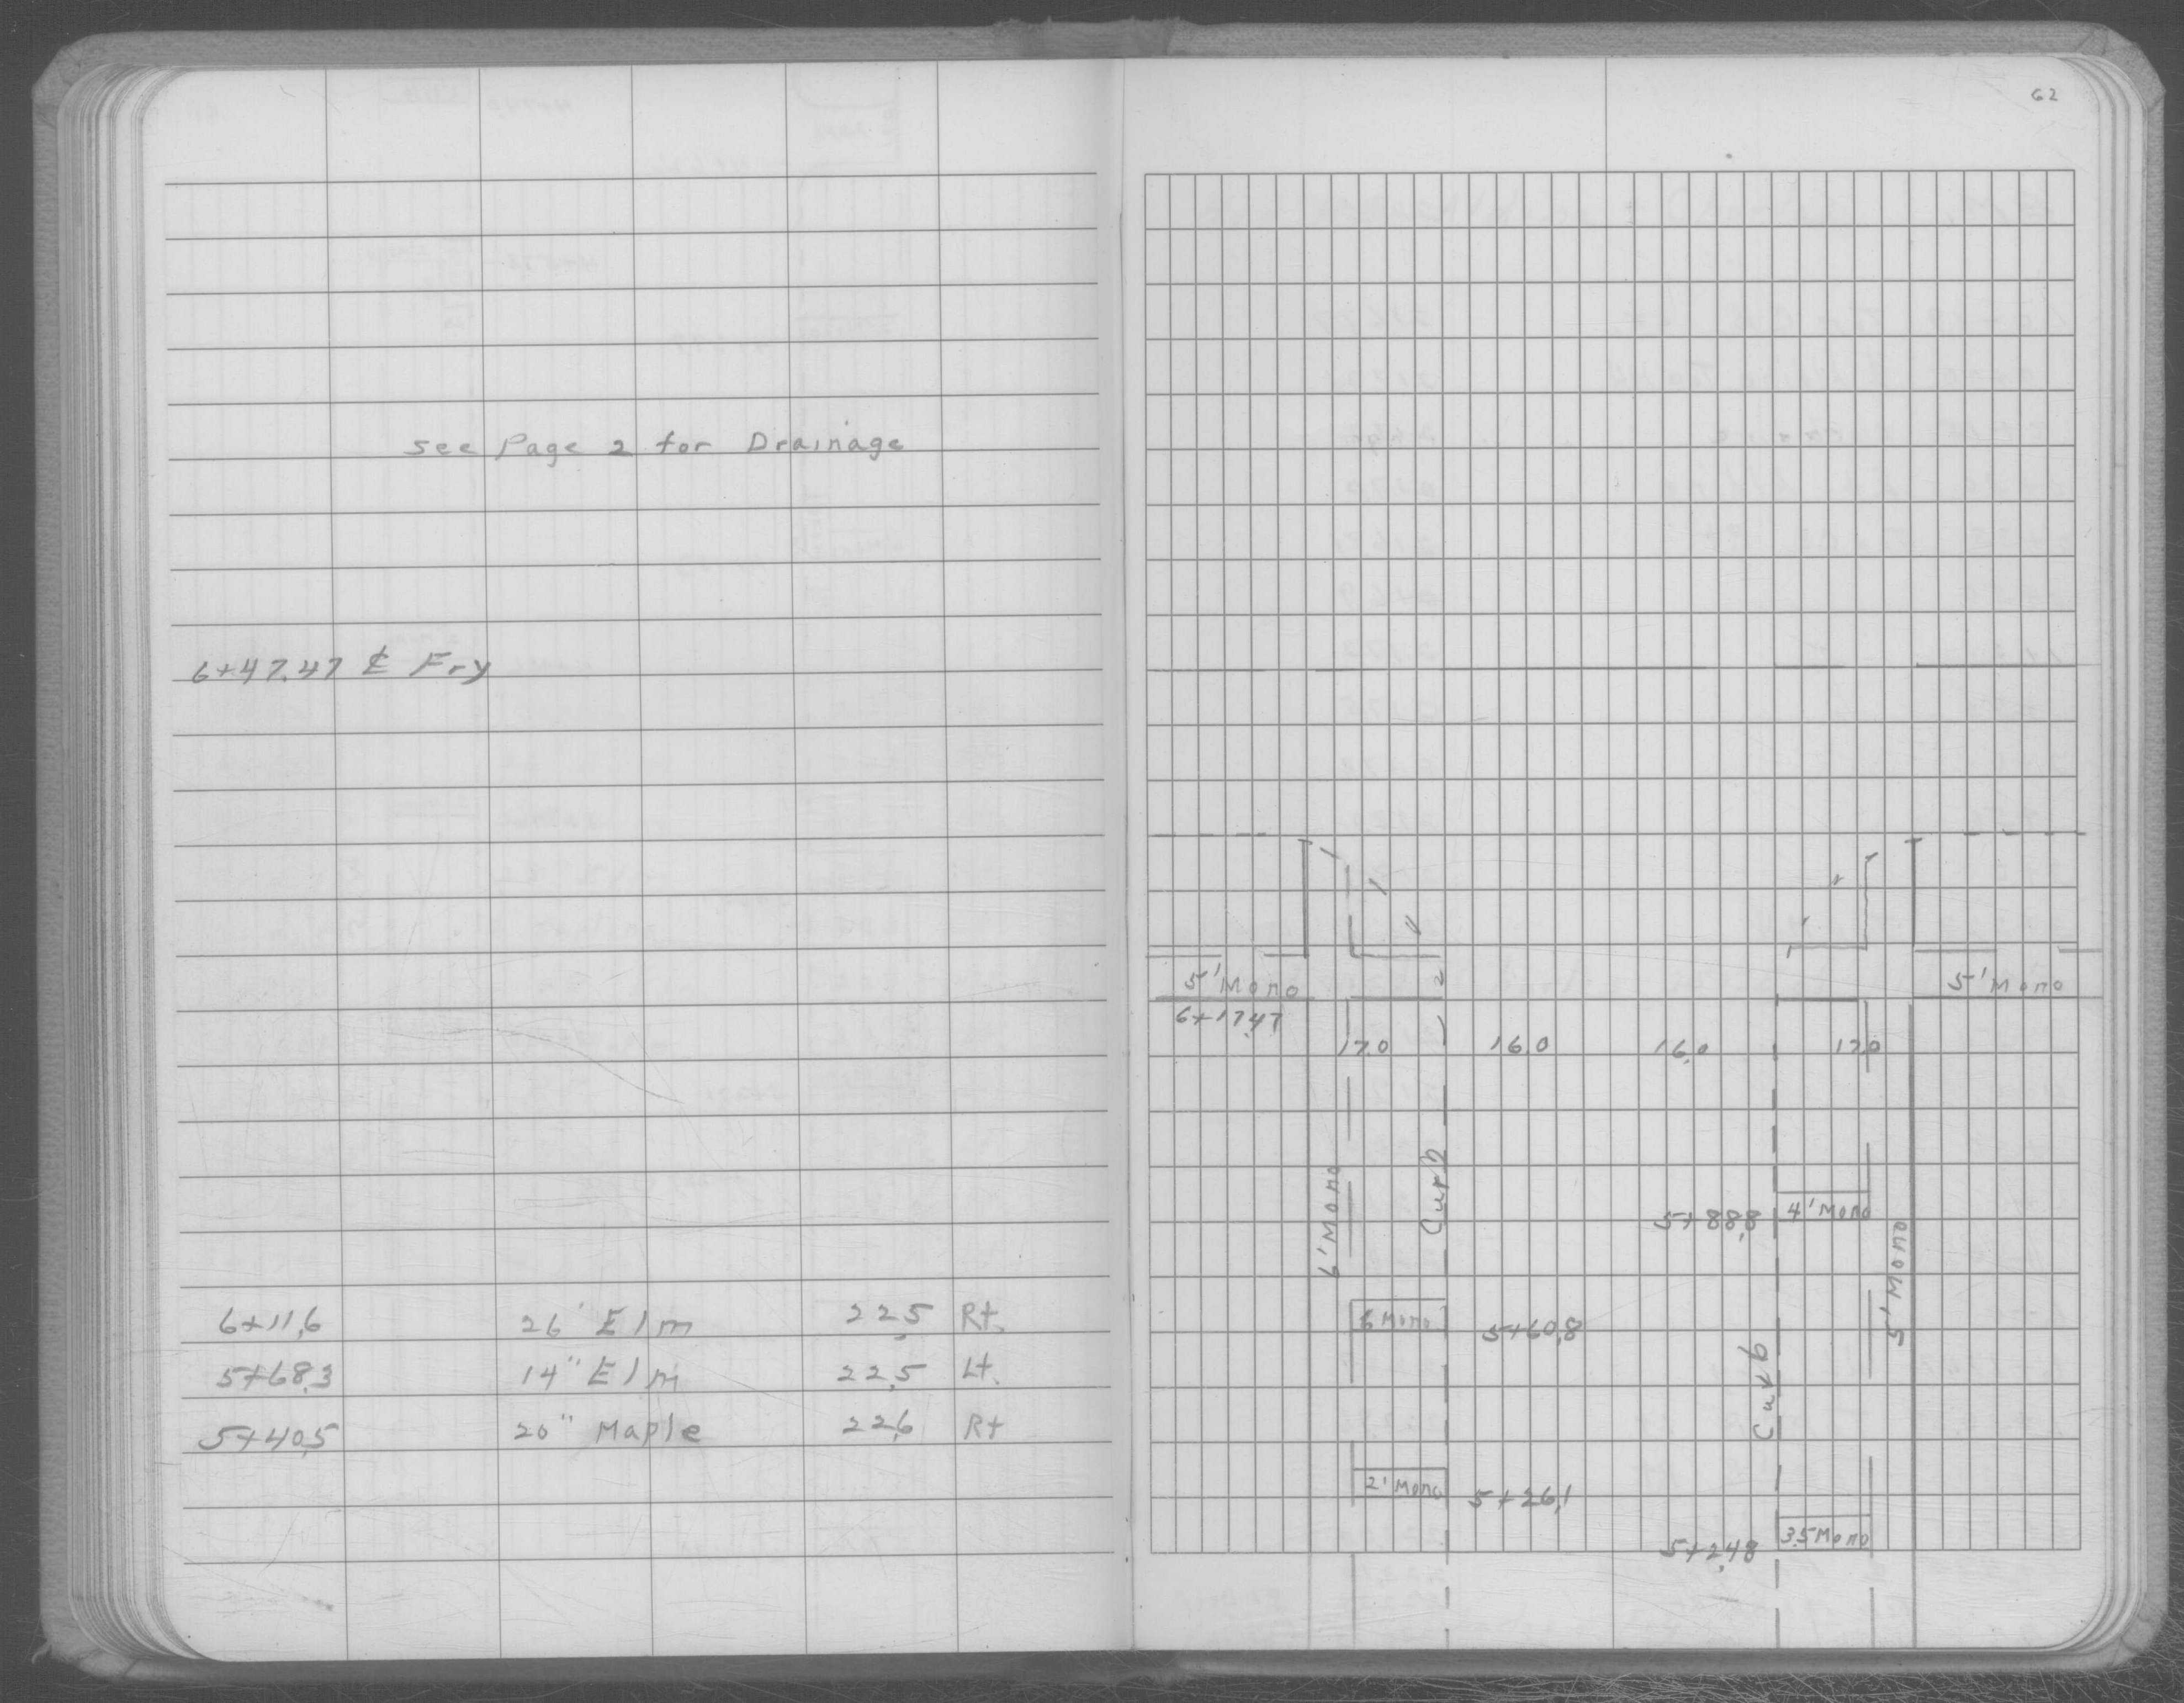 62
see Page 2 for Drainage
6+47.47 ℄ Fry
6+11.6 26" Elm 22.5 Rt.
5+68.3 14" Elm 22.5 Lt.
5+40.5 20" Maple 22.6 Rt
5' Mono 5' Mono
6+17.47
17.0 16.0 16.0 17.0
6' Mono
Curb
5+88.8 4' Mono
5' Mono
6 Mono 5+60.8
Curb
2' Mono 5+26.1
5+2.48 3.5 Mono